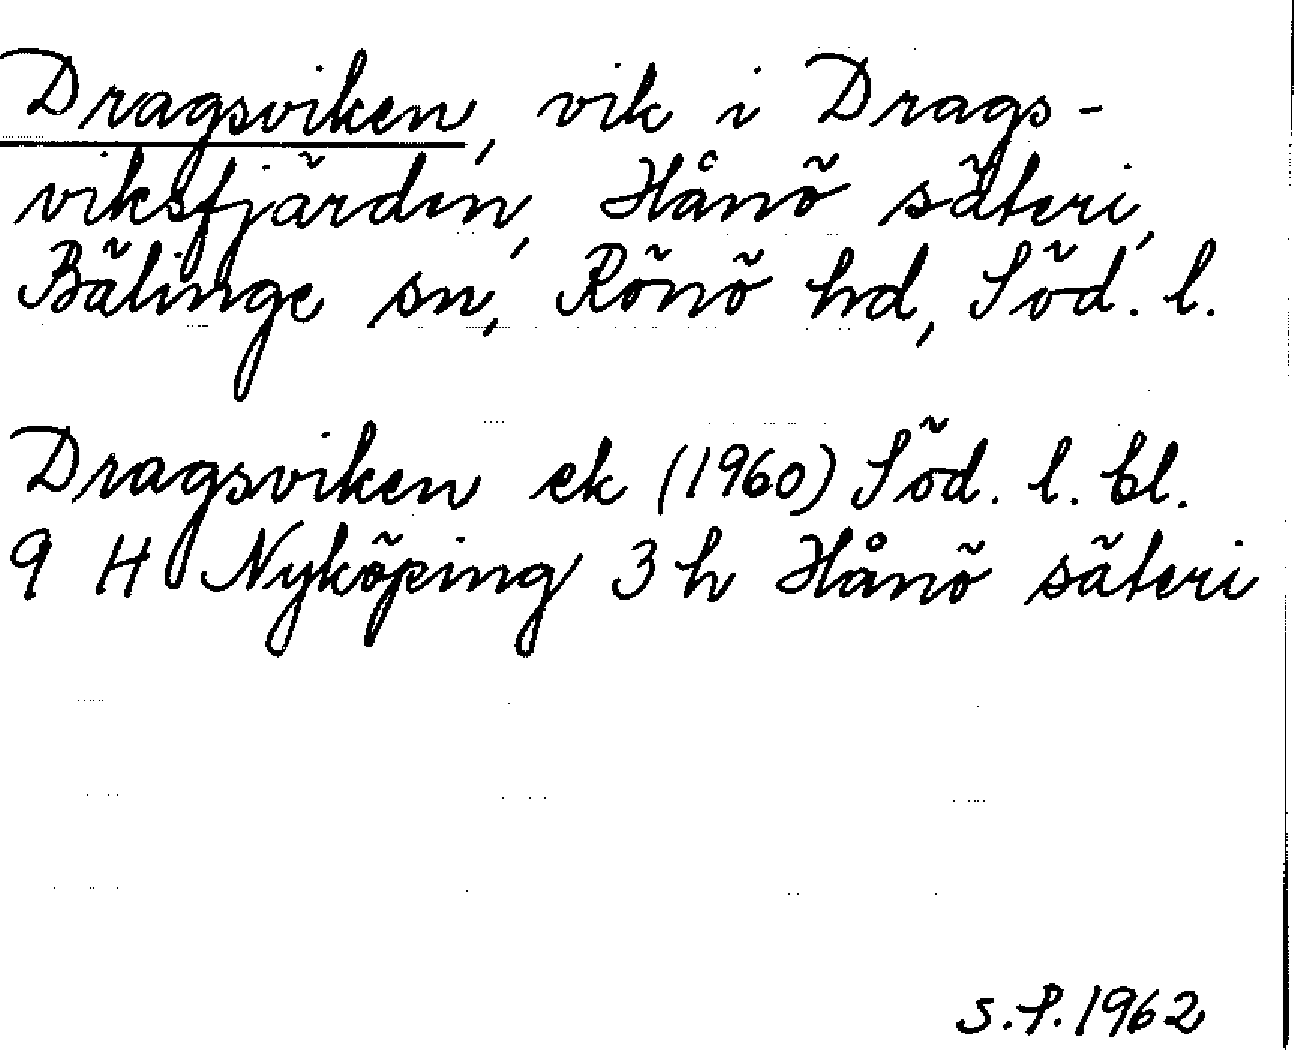 Dragsviken, vik i Drags-
viksfjärden, Hånö säteri,
Bälinge sn, Rönö hd, Söd. l.
Dragsviken ek (1960) Söd. l. bl.
9 H Nyköping 3 h Hånö säteri
S.P. 1962